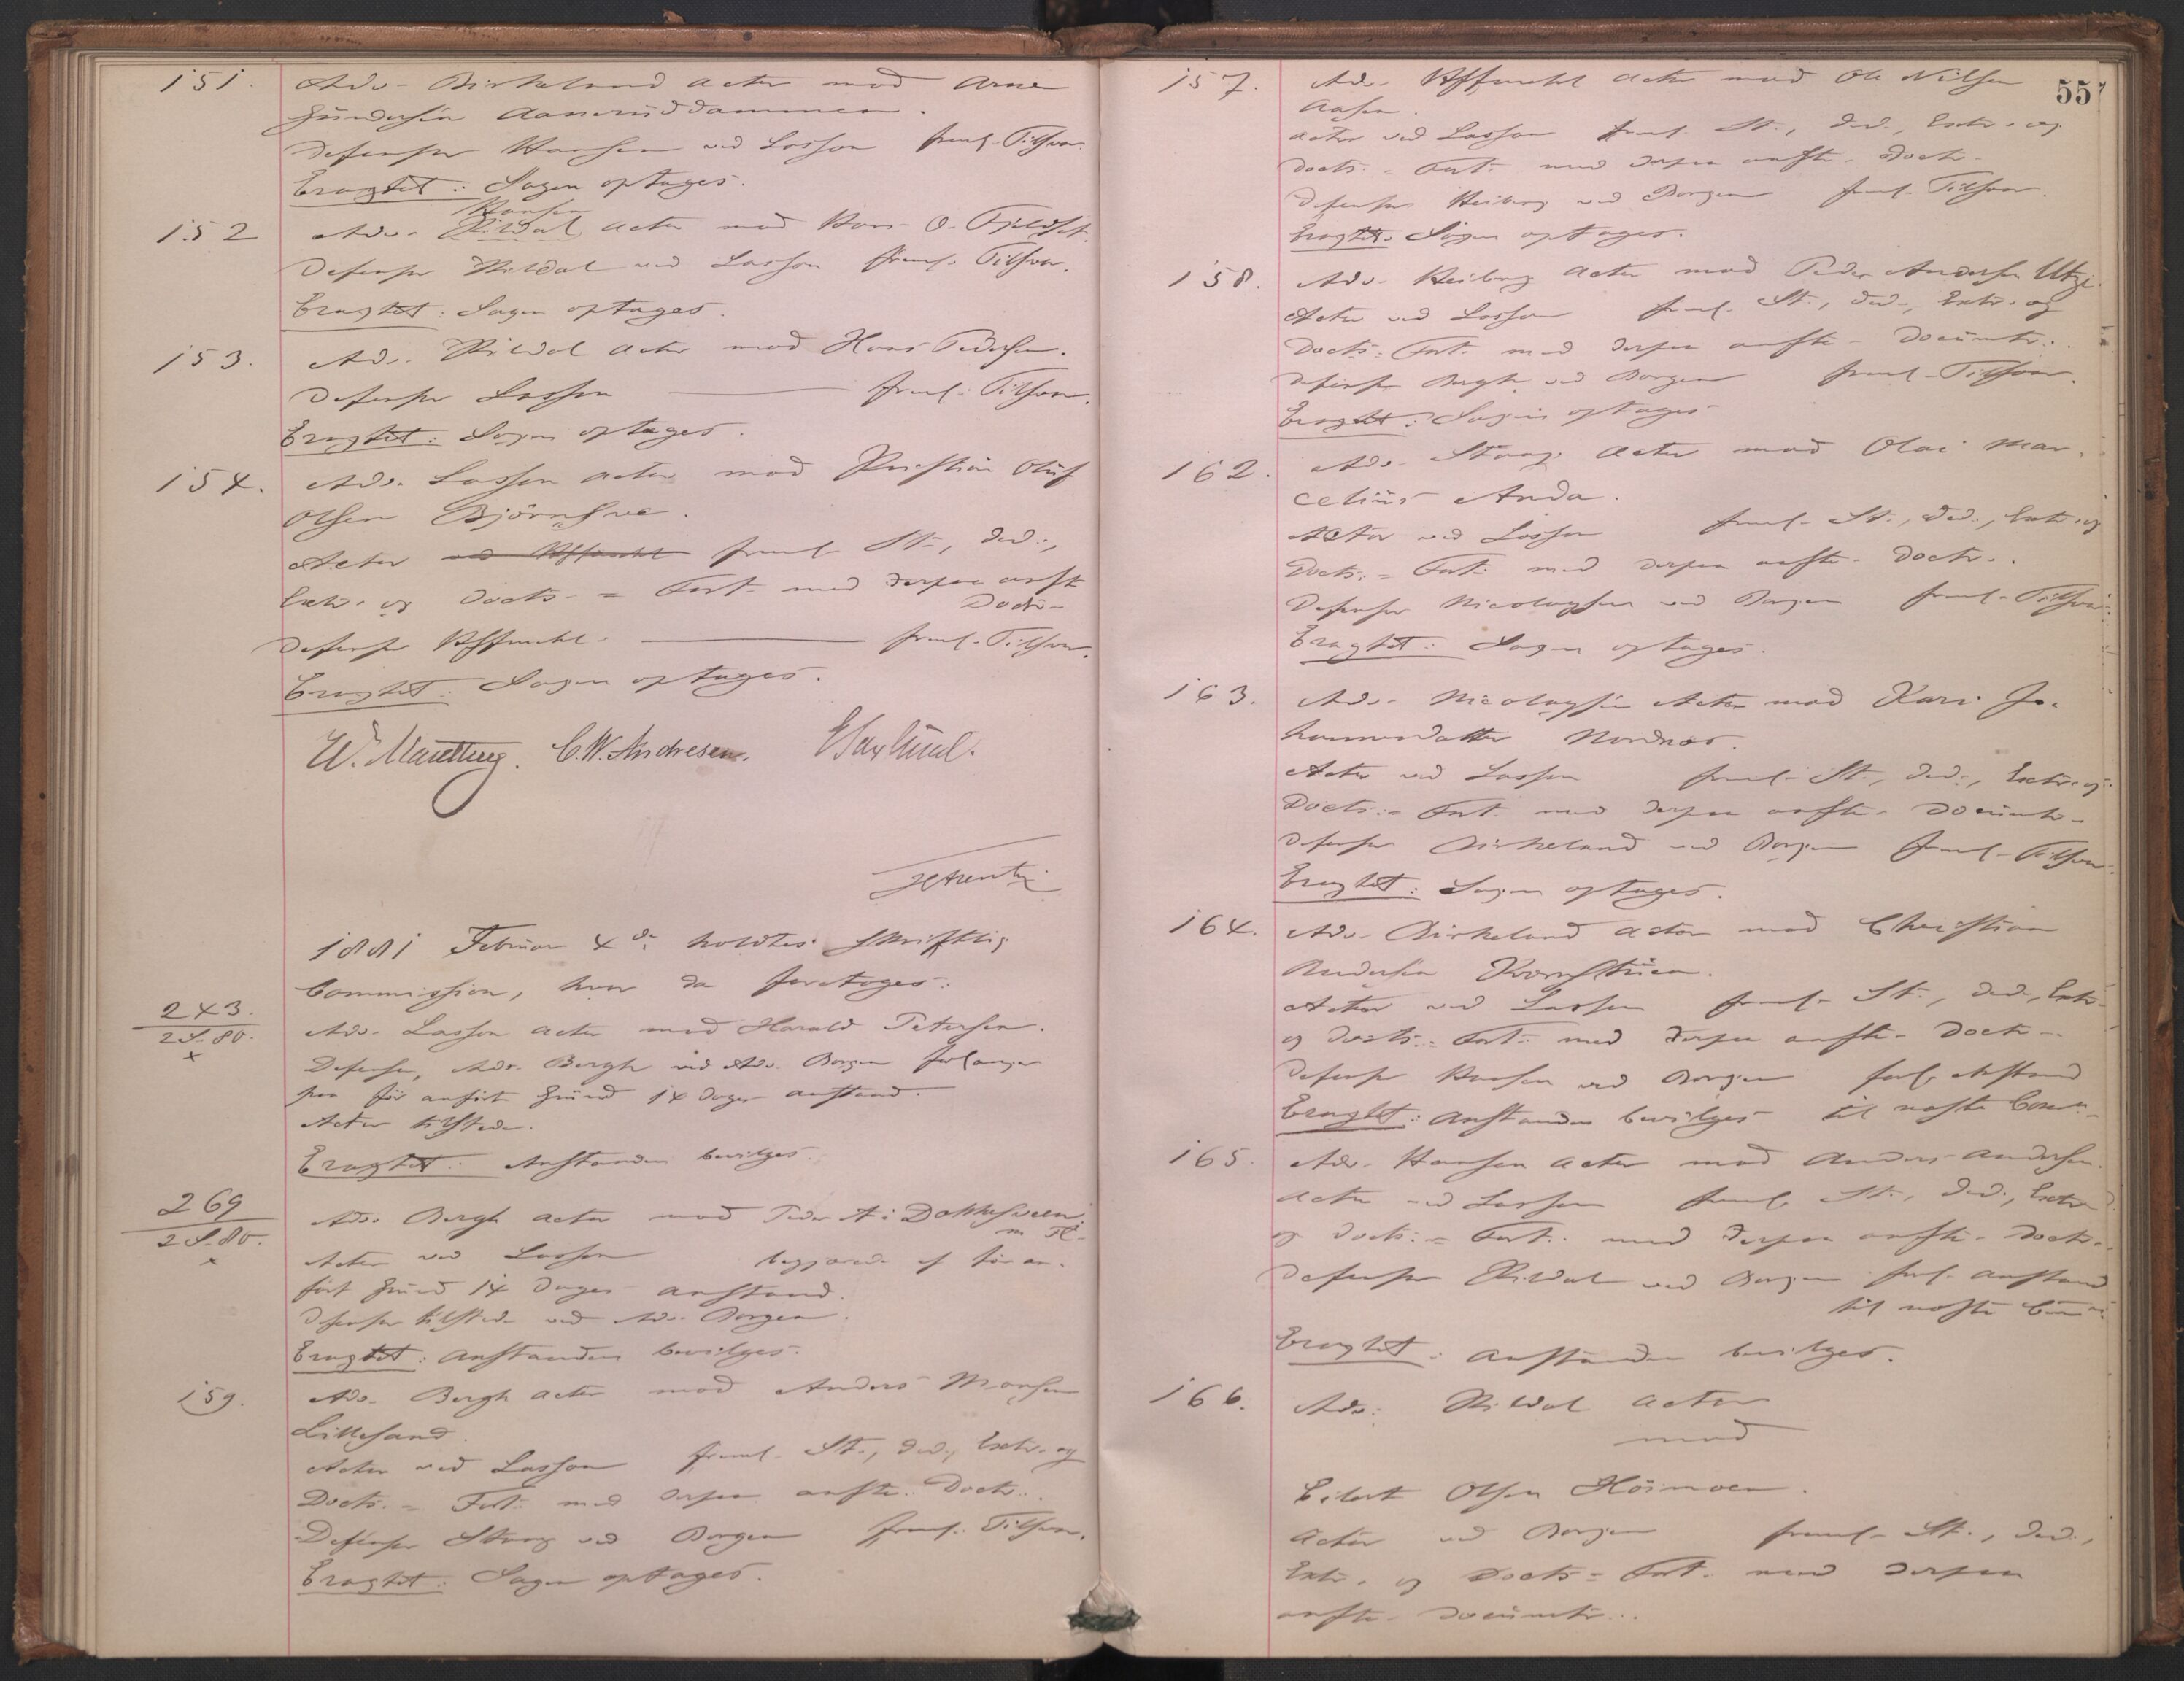 151. Adv. Birkeland Actor mod Arne
Gundersen Aaserud dammen.
Defensor Hansen ved Lasson freml. Tilsvar.
Eragtet: Sagen optages.
Hansen
152 Adv. Rildal Actor mod Hans O. Fjeldset.
Defensor Rildal ved Lasson freml. Tilsvar.
Eragtet: Sagen optages.
153. Adv. Rildal Actor mod Hans Pedersen.
Defensor Lasson freml. Tilsvar.
Eragtet: Sagen optages.
154. Adv. Lasson Actor mod Kristian Oluf
Olsen Björnsve.
Actor ved freml. St., Ded.,
Extr. og Docts. = Fort. med derpaa anfte
Doctr.
Defensor freml. Tilsvar.
Eragtet: Sagen optages.
C.W. Andresen.
1881 Februar 4de holdtes skriftlig
Commission, hvor da foretoges:
243. Adv. Lasson Actor mod Harald Petersen.
2 S. 80.
x
Defensor, Adv. Bergh ved Adv. Borgen forlanger
paa før anført Grund 14 Dages Anstand.
Actor tilstede.
Eragtet: Anstanden bevilges.
269 Adv. Bergh Actor mod Peder A. Dokkesveen
m Fl.
2 S. 80.
x
Actor ved Lasson begjærede af før an-
ført Grund 14 Dages Anstand.
Defensor tilstede ved Adv. Borgen.
Eragtet: Anstanden bevilges.
159. Adv. Bergh Actor mod Anders Monsen
Lillesand.
Actor ved Lasson freml. St., Ded., Extr. og
Docts. = Fort. med derpaa anfte. Doctr.
Defensor Stang ved Borgen freml. Tilsvar.
Eragtet: Sagen optages.
557
157. Adv. Actor mod Ole Nilsen
Aasen.
Actor ved Lasson freml. St., Ded., Extr. og
Docts. = Fort. med derpaa anfte. Doctr.
Defensor Heiberg ved Borgen freml. Tilsvar.
Eragtet: Sagen optages.
158. Adv. Heiberg Actor mod Peder Andersen
Actor ved Lasson freml. St., Ded., Extr. og
Docts. = Fort. med derpaa anfte. Documtr.
Defensor Bergh ved Borgen freml. Tilsvar.
Eragtet: Sagen optages
162. Adv. Stang Actor mod Olai Mar-
celius Anda.
Actor ved Lasson freml. St., Ded., Extr. og
Docts. = Fort. med derpaa anfte. Doctr.
Defensor Nicolaysen ved Borgen freml. Tilsvar.
Eragtet: Sagen optages.
163. Adv. Nicolaysen Actor mod Kari Jo-
hannesdatter Nordnæs.
Actor ved Lasson freml. St., Ded., Extr. og
Docts. = Fort. med derpaa anfte. Documtr.
Defensor Birkeland ved Borgen freml. Tilsvar.
Eragtet: Sagen optages.
164. Adv. Birkeland Actor mod Christian
Andersen Kvernstuen.
Actor ved Lasson freml. St., Ded., Extr.
og Docts. = Fort. med derpaa anfte. Doctr.
Defensor Hansen ved Borgen forl. Anstand
Eragtet: Anstanden bevilges til næste Comn.
165. Adv. Hansen Actor mod Anders Andersen.
Actor ved Lasson freml. St., Ded., Extr.
og Docts. = Fort. med derpaa anfte. Doctr.
Defensor Rildal ved Borgen forl. Anstand
til næste Comn.
Eragtet: Anstanden bevilges.
166. Adv. Rildal Actor
mod
Eilert Olsen Höimoen.
Actor ved Borgen freml. St., Ded.,
Extr. og Docts. = Fort. med derpaa
anfte. Documtr.